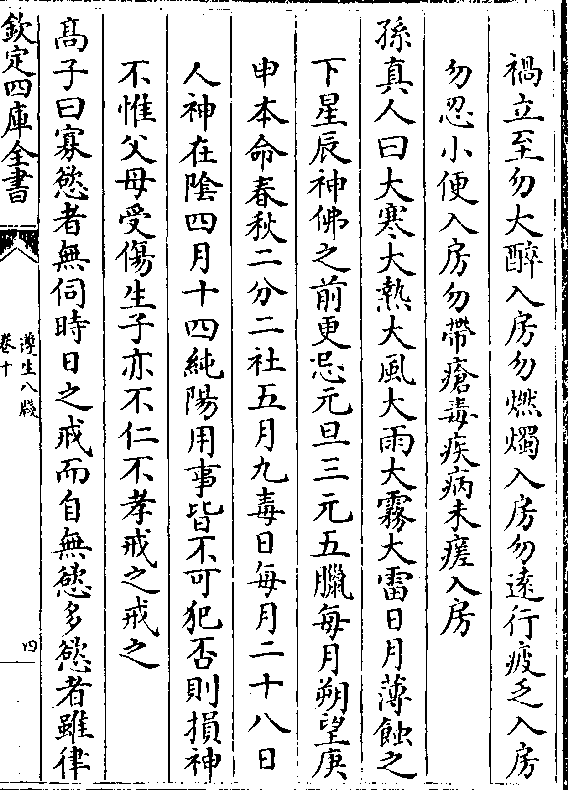 禍立至勿大醉入房勿燃燭入房勿逺行疲乏入房
勿忍小便入房勿帶瘡毒疾病未瘥入房
孫真人曰大寒大熱大風大雨大霧大雷日月薄蝕之
下星辰神佛之前更忌元旦三元五臘每月朔望庚
申本命春秋二分二社五月九毒日每月二十八日
人神在陰四月十四純陽用事皆不可犯否則損神
不惟父母受傷生子亦不仁不孝戒之戒之
髙子曰寡慾者無伺時日之戒而自無慾多慾者雖律
欽定四庫全書
遵生八牋
卷十
四